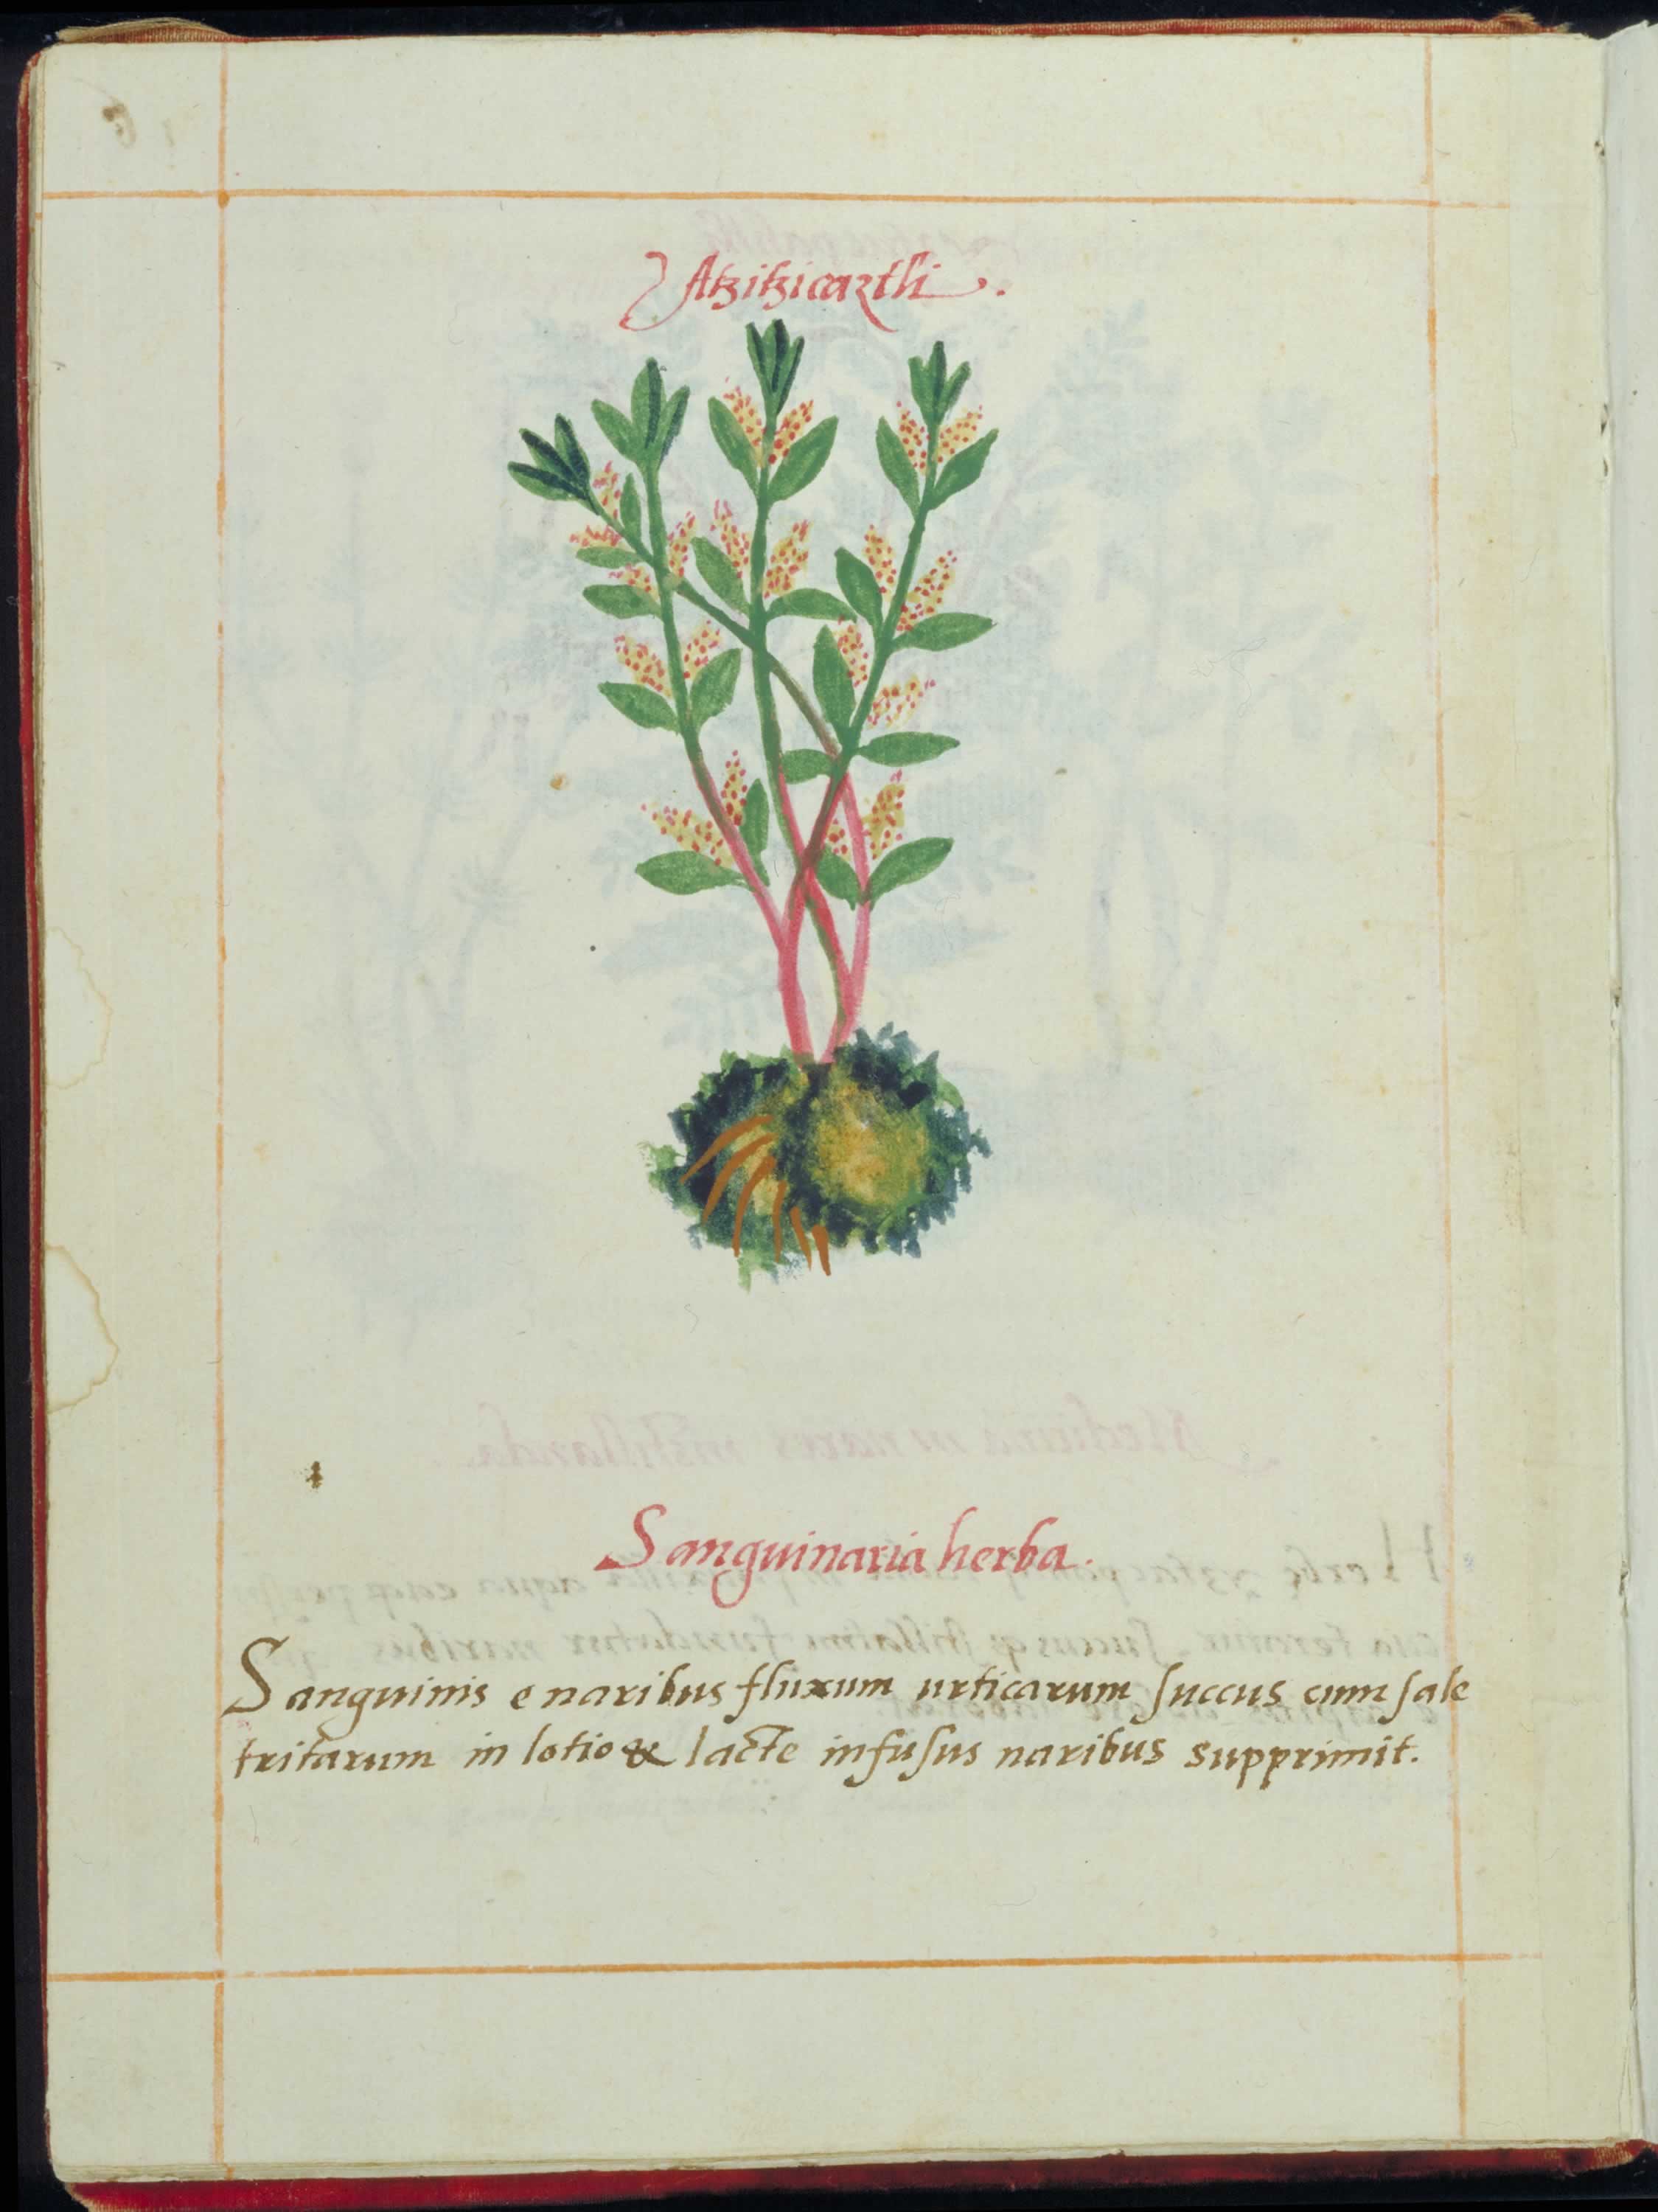 Atzitzicaztli.
Sanguinaria herba.
Sanguinis e naribus fluxum urticarum succus cum sale
tritarum in lotio & lacte infusus naribus supprimit.